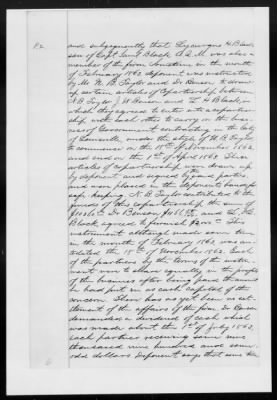 P2.
and subsequently that Lycurgus H Black
son of Capt Saml Black A.Q.M. was also a
member of the firm. Sometime in the month
of February 1863 deponent was instructed
by Mr W. B. Taylor and Dr Benson to draw
up certain articles of Copartnership between
B Taylor J Benson and L H Black, in
which they agreed to enter into a copartner-
ship with each other to carry on the busi-
ness of Government contractors in the City
of Louisville, under the style of Taylor
to commence on the 18th of November 1862
and end on the 1st of April 1863. These
articles of copartnership were drawn up
by deponent and signed by the parties
and were placed in the deponents hands for
safe keeping. B Taylor contributed to the
funds of this copartnership, the sum of
Dr Benson and L H
Black agreed to furnish This
instrument although made some time
in the month of February 1863, was an-
tedated the 18th of November 1862. Each
of the partners by the terms of the instru-
ment were to share equally in the profits
of the business after being paid the sums
he had put in as cash capital of the
concern. There has as yet been no set-
tlement of the affairs of the firm. Dr Benson
demanded a dividend of cash which
was made about the 1st of July 1863,
each partner receiving some nine
thousand nine hundred and some
odd dollars. Deponent says that some time